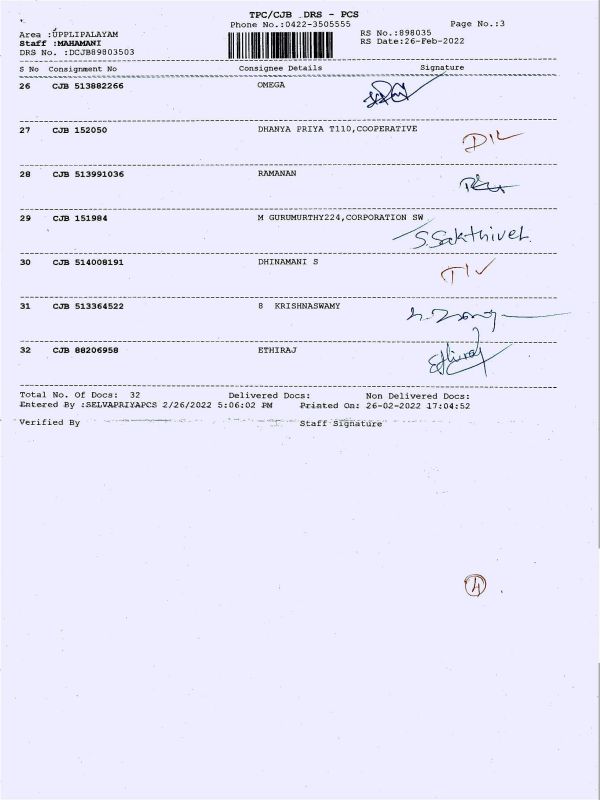 TPC/CJB DRS - PCS
Phone No.:0422-3505555
Page No.:3
Area :UPPLIPALAYAM
RS No.:898035
Staff :MAHAMANI
RS Date:26-Feb-2022
DRS No. :DCJB89803503
S No Consignment No Consignee Details Signature
26 CJB 513882266 OMEGA
27 CJB 152050 DHANYA PRIYA T110,COOPERATIVE
DIL
28 CJB 513991036 RAMANAN
29 CJB 151984 M GURUMURTHY224,CORPORATION SW
S.Sakthivel
30 CJB 514008191 DHINAMANI S
31 CJB 513364522 8 KRISHNASWAMY
32 CJB 88206958 ETHIRAJ
Ethiraj
Total No. Of Docs: 32 Delivered Docs: Non Delivered Docs:
Entered By :SELVAPRIYAPCS 2/26/2022 5:06:02 PM Printed On: 26-02-2022 17:04:52
Verified By Staff Signature